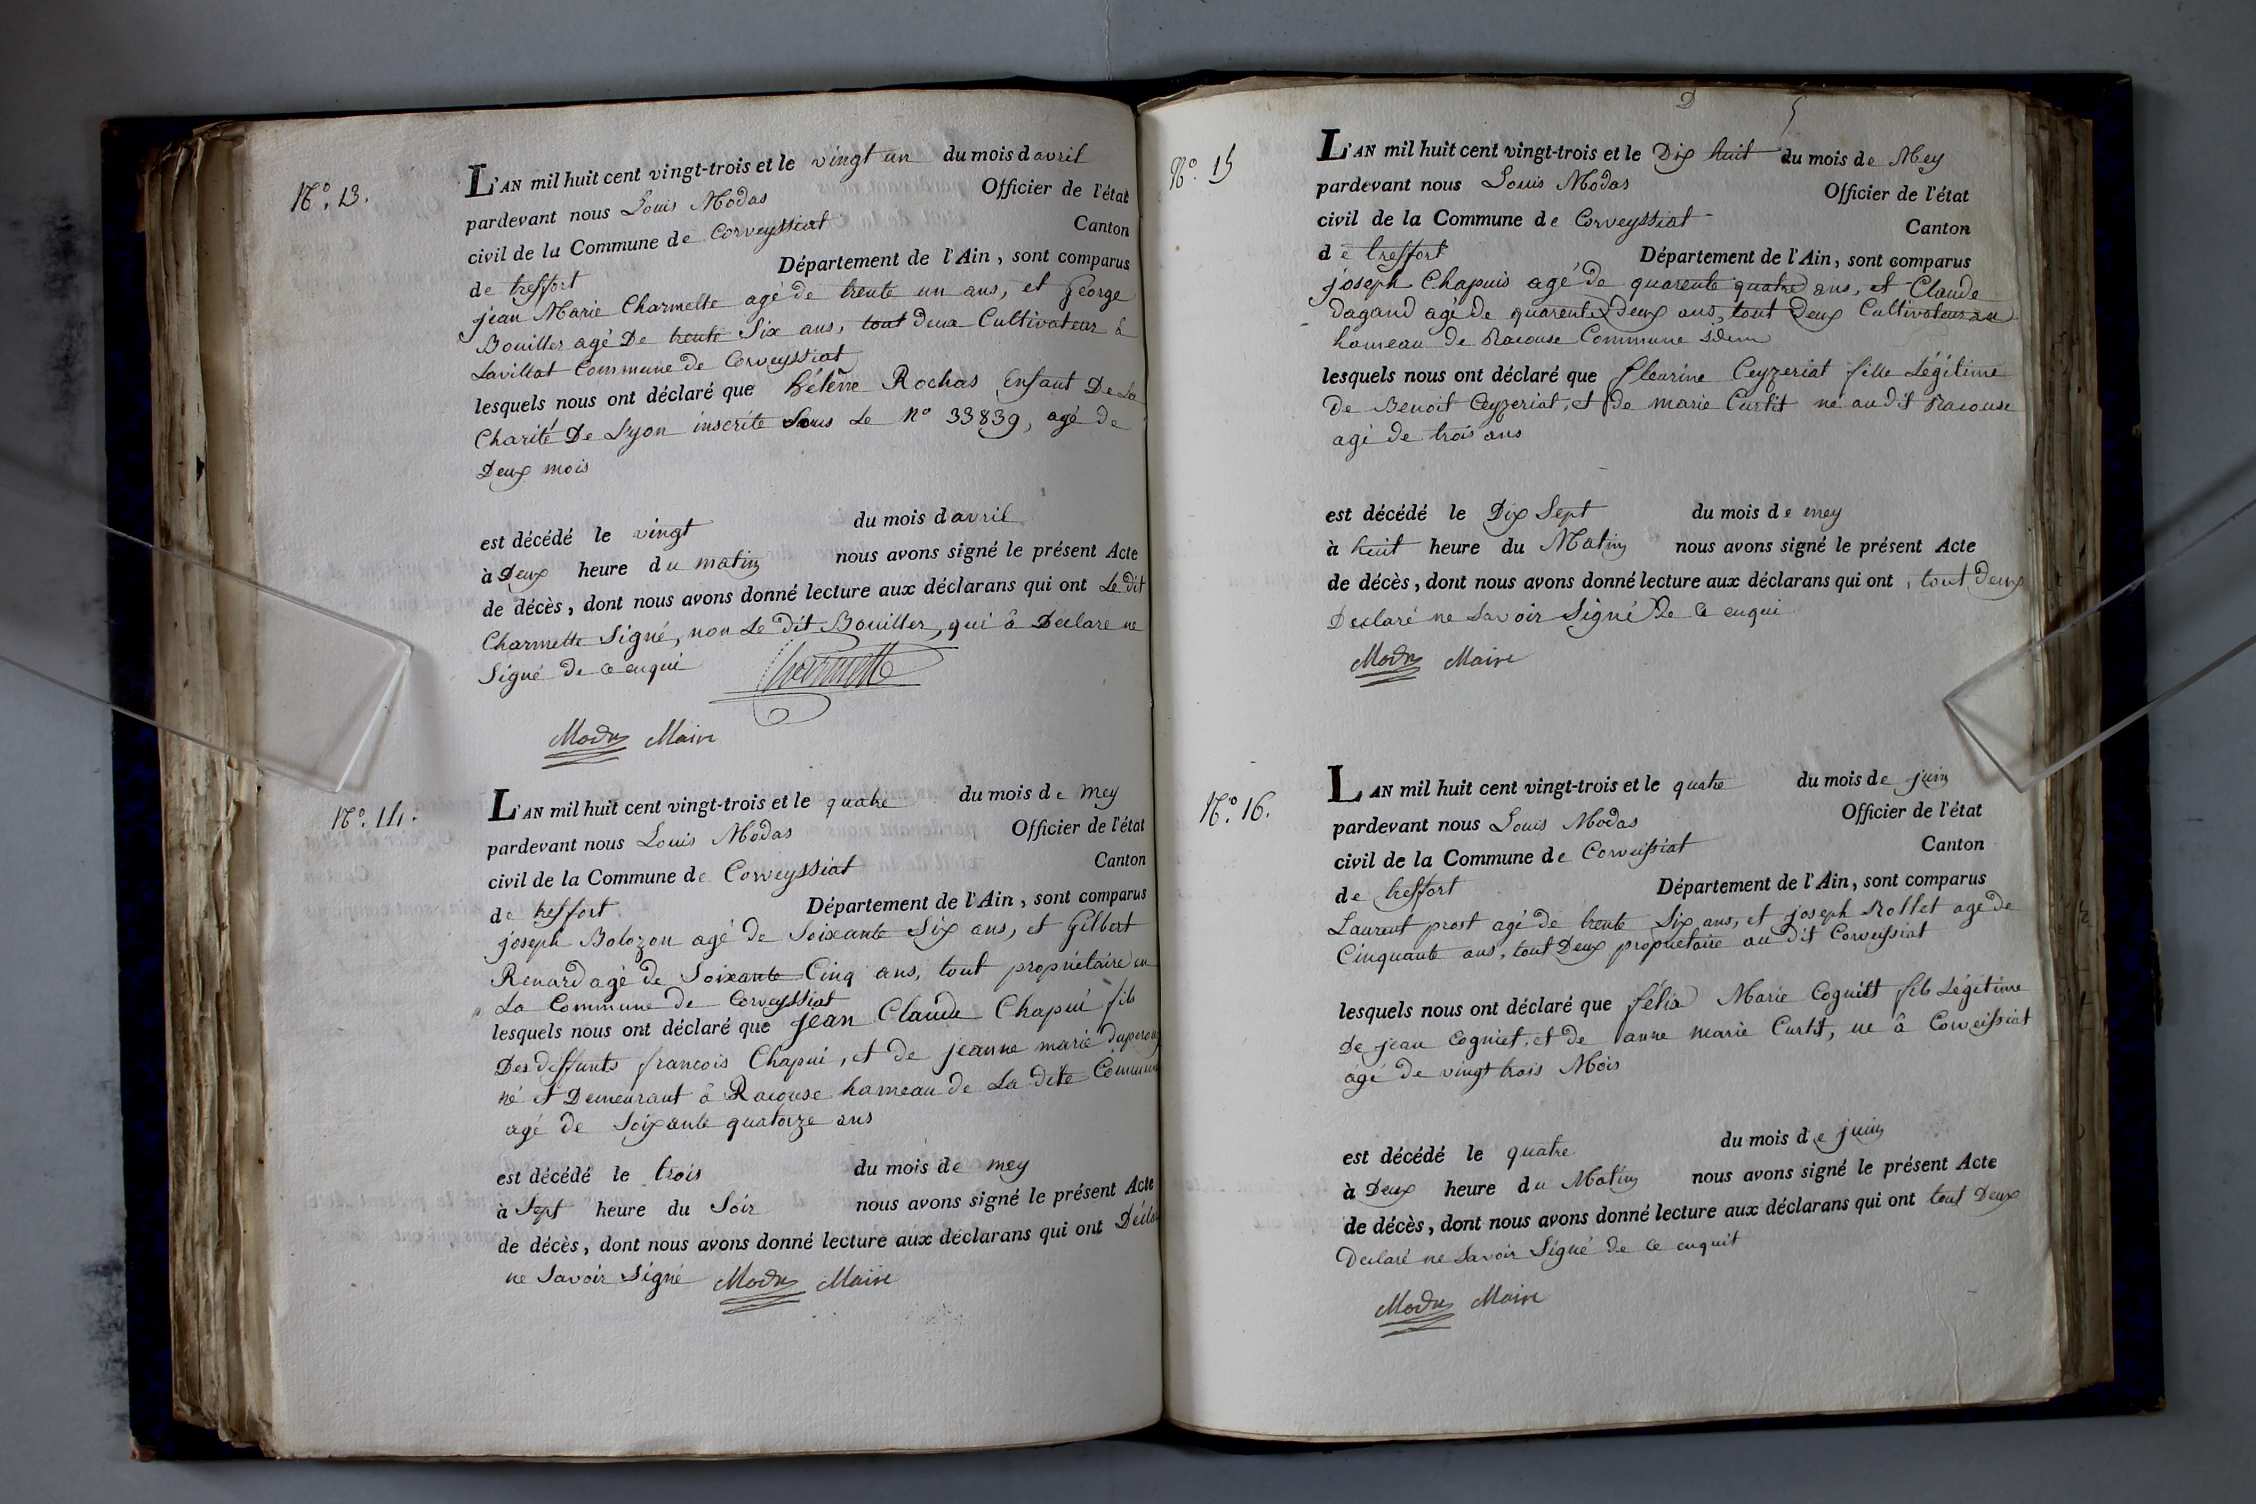 N.° 13.
L'AN mil huit cent vingt-trois et le vingt un du mois d avril
pardevant nous Louis Modas Officier de l'état
civil de la Commune de Corveyssiat Canton
de treffort Département de l'Ain, sont comparus
jean Marie Charmette agé de trente un ans, et George
Bouiller agé De trente Six ans, tout deux Cultivateur à
Lavillat Commune de Corveyssiat
lesquels nous ont déclaré que hélène Rochas Enfant De La
Charité De Lyon inscrite Sous Le N° 33839, agé de
Deux mois
est décédé le vingt du mois d avril
à Deux heure du matin nous avons signé le présent Acte
de décès, dont nous avons donné lecture aux déclarans qui ont Le dit
Charmette Signé, non Le dit Bouiller, qui à Déclaré ne
Signé de ce enqui Charmette
Modas Maire
N.° 14.
L'AN mil huit cent vingt-trois et le quatre du mois de mey
pardevant nous Louis Modas Officier de l'état
civil de la Commune de Corveyssiat Canton
de treffort Département de l'Ain, sont comparus
joseph Bolozon agé de Soixante Six ans, et Gilbert
Renard agé de Soixante Cinq ans, tout propriétaire en
La Commune de Corveyssiat
lesquels nous ont déclaré que jean Claude Chapui fils
Des deffunts francois Chapui, et de jeanne marie
né et Demeurant à Racouse hameau de La dite Commune
agé de Soixante quatorze ans
est décédé le trois du mois de mey
à Sept heure du Soir nous avons signé le présent Acte
de décès, dont nous avons donné lecture aux déclarans qui ont Décla
ne Savoir Signé Modas Maire
D 5
N.° 15
L'AN mil huit cent vingt-trois et le Dix huit du mois de Mey
pardevant nous Louis Modas Officier de l'état
civil de la Commune de Corveyssiat Canton
de treffort Département de l'Ain, sont comparus
joseph Chapuis agé de quarente quatre ans, et Claude
Dagand agé de quarente Deux ans, tout Deux Cultivateur au
hameau de Racouse Commune idem
lesquels nous ont déclaré que fleurine Ceyzeriat fille Légitime
De Benoit Ceyzeriat, et de marie Curtit né au dit Racouse
agé de trois ans
est décédé le Dix Sept du mois de mey
à huit heure du Matin nous avons signé le présent Acte
de décès, dont nous avons donné lecture aux déclarans qui ont, tout Deux
Declaré ne Savoir Signé De ce enqui
Modas Maire
N.° 16.
L'AN mil huit cent vingt-trois et le quatre du mois de juin
pardevant nous Louis Modas Officier de l'état
civil de la Commune de Corveissiat Canton
de treffort Département de l'Ain, sont comparus
Laurent prost agé de trente Six ans, et joseph Rollet agé de
Cinquante ans, tout Deux propriétaire au dit Corveyssiat
lesquels nous ont déclaré que félix Marie Cogniet fils Légitime
De jean Cogniet, et de anne marie Curtit, né à Corveissiat
agé de vingt trois Mois
est décédé le quatre du mois de juin
à Deux heure du Matin nous avons signé le présent Acte
de décès, dont nous avons donné lecture aux déclarans qui ont tout Deux
Declaré ne Savoir Signé de ce enquit
Modas Maire